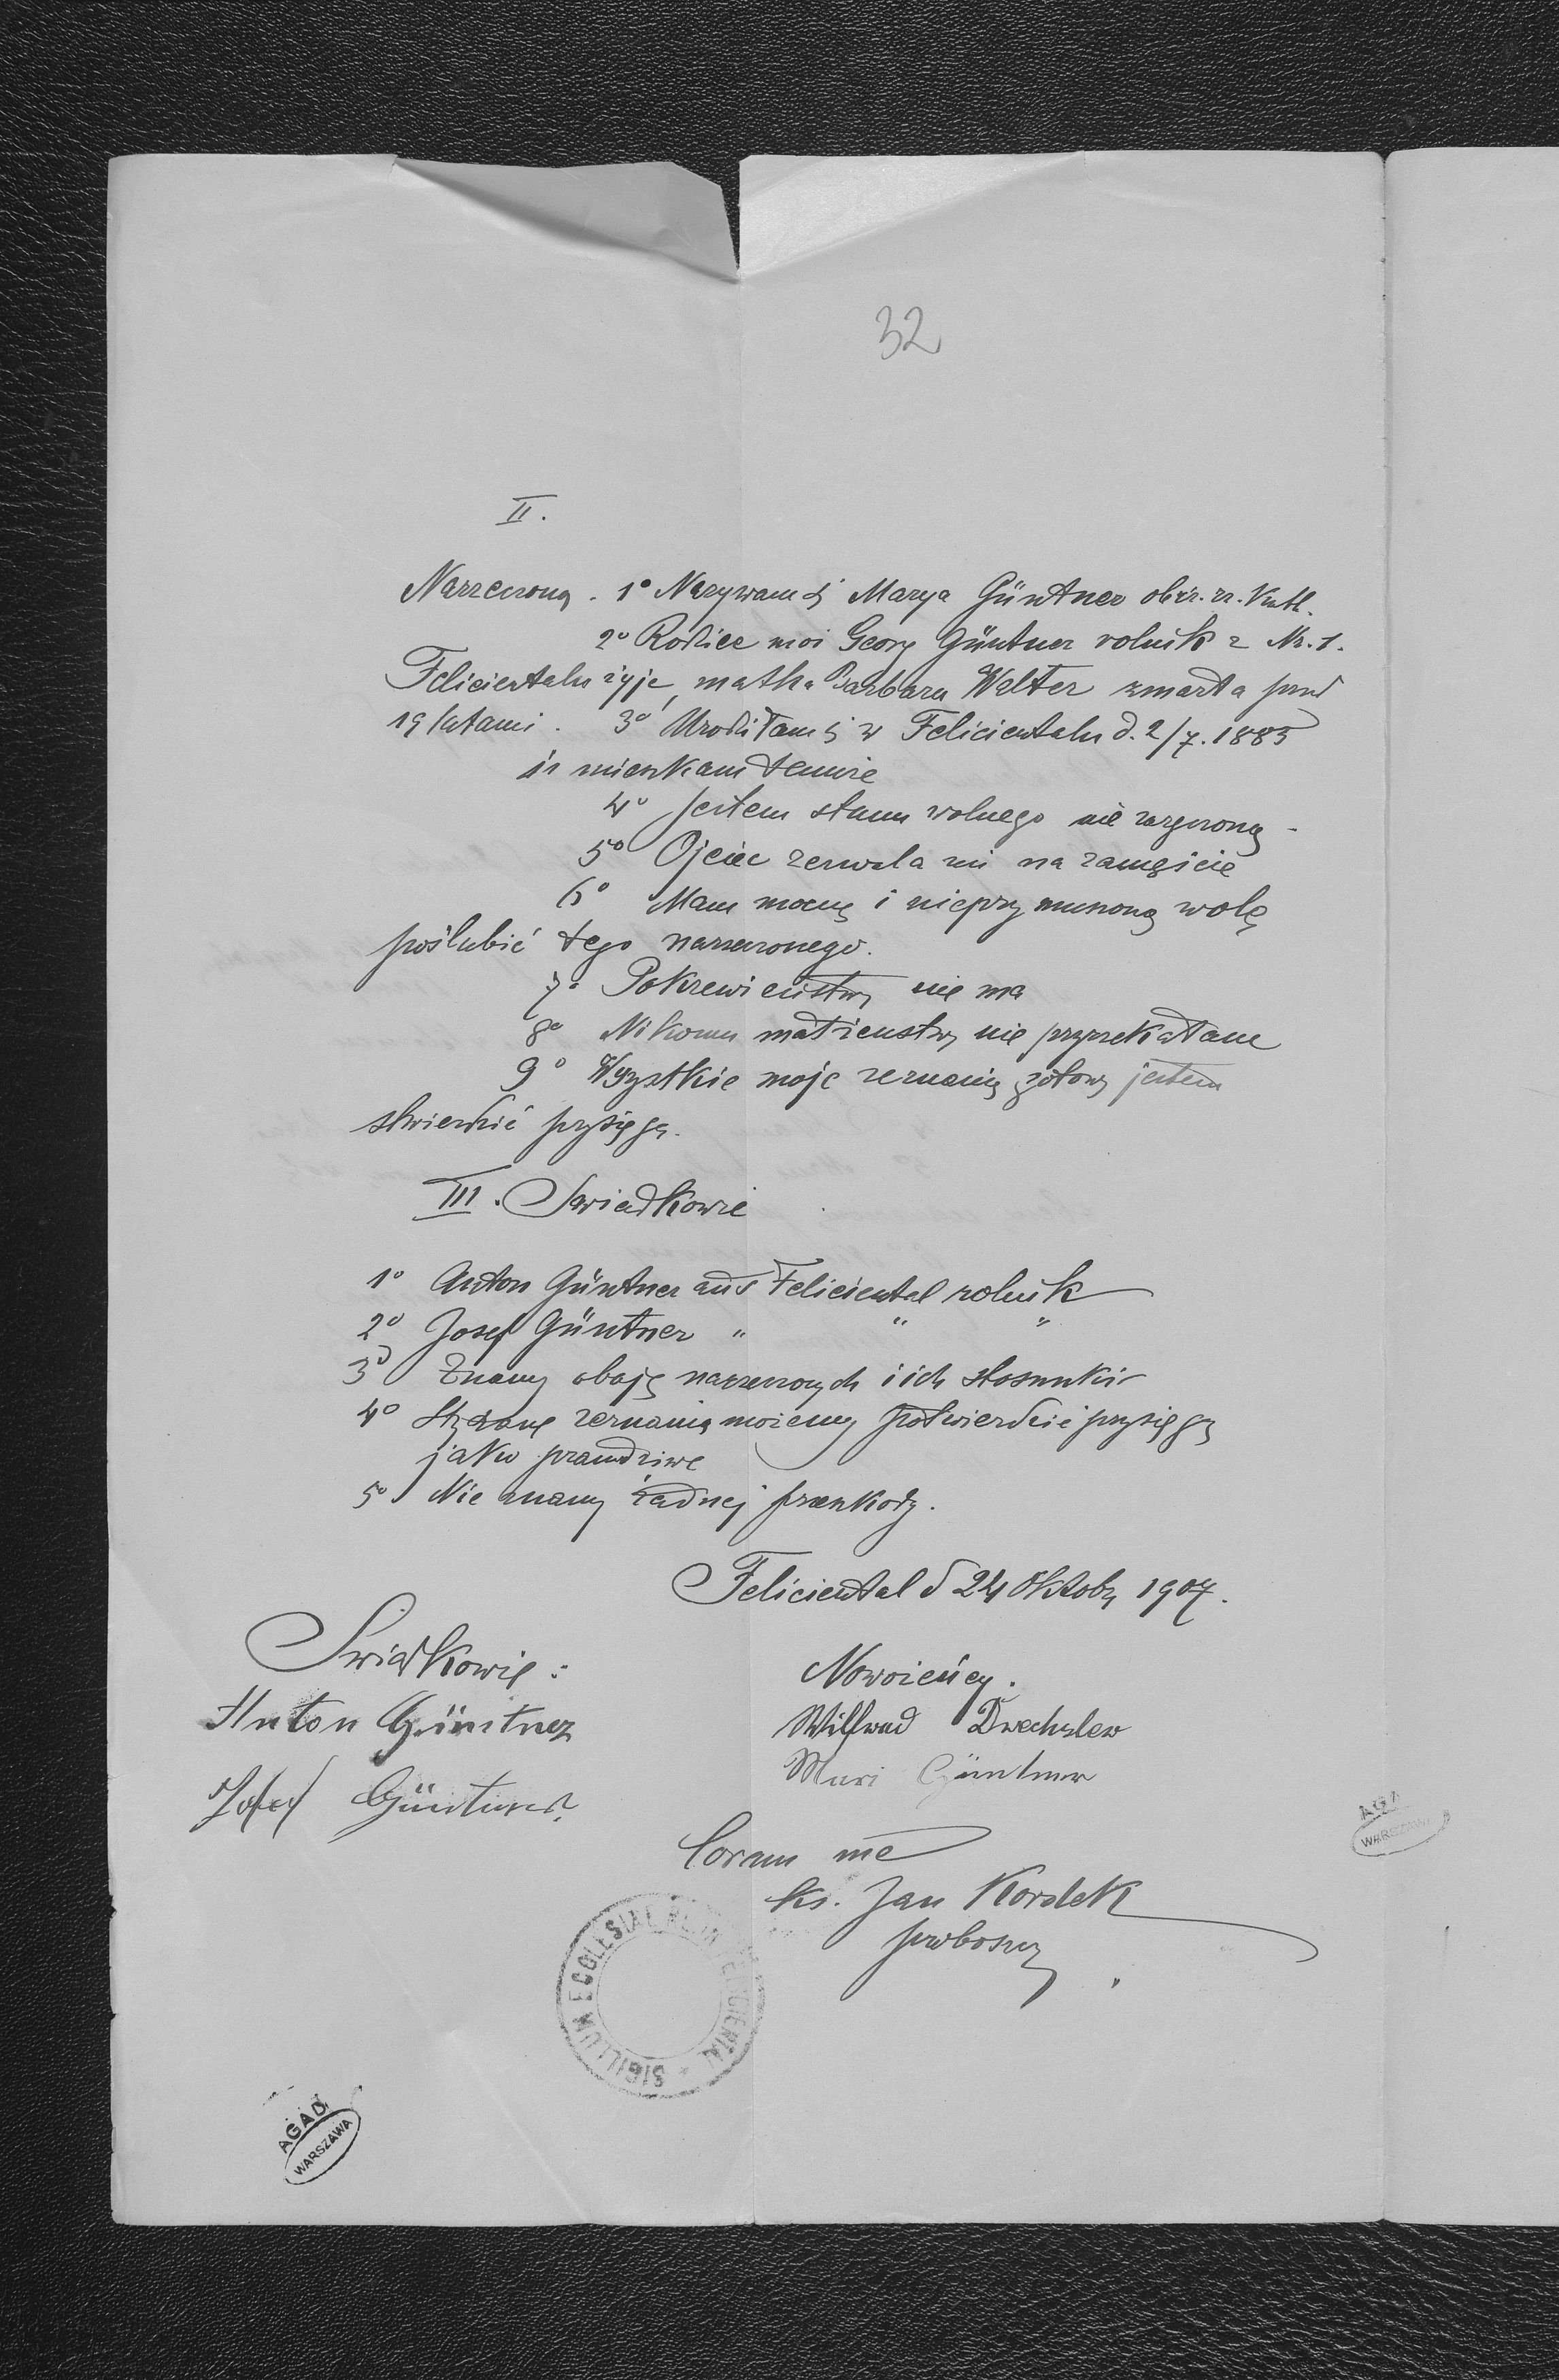 32
II.
Narzeczona. 1° Nazywam się Marya Güntner obrz. rz. Kath.
2° Rodzice moi Georg Güntner rolnik z Nr. 1.
Felicientalu żyje, matka Barbara Walter zmarła przed
19 latami. 3° Urodziłam się w Felicientalu d. 2/7. 1885
i mieszkam temże
4° Jestem stanu wolnego nie
5° Ojciec zezwala mi na zamęście
6° Mam mocną i nieprzymuszoną wolę
poślubić tego narzeczonego.
7° Pokrewieństwa nie ma
8° Nikomu małżeństwa nie przyrzekałam
9° Wszystkie moje zeznania gotowa jestem
stwierdzić przysięgą.
III. Swiadkowie
1° Anton Güntner aus Feliciental rolnik
2° Josef Güntner " " "
3° Znamy oboje narzeczonych i ich stosunki
4° zeznania możemy potwierdzić przysięgą
jako prawdziwe
5° Nie znamy żadnej przeszkody.
Feliciental d 24 Oktobr 1907.
Swiadkowie:
Anton Güntner
Josef Güntner
Nowożeńcy.
Wilfrud Drechsler
Mari Güntner
Coram me
ks. Jan Kordek
proboszcz
SIGILLUM ECCLESIAE
AGAD
WARSZAWA
AGA
WARSZAWA